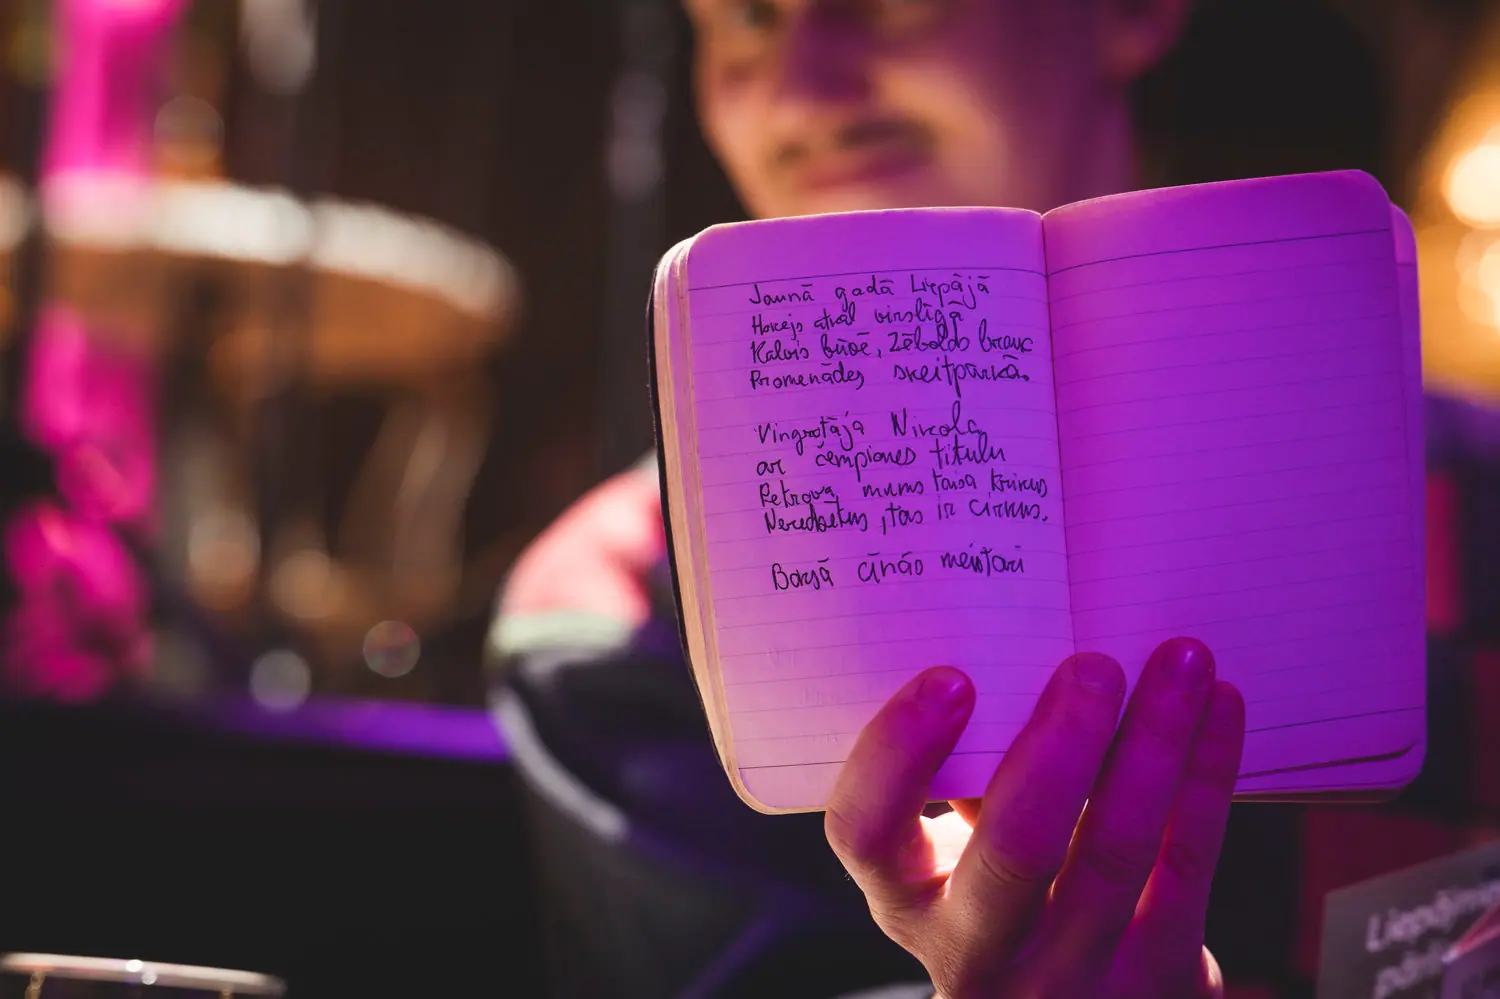 Jaunā gadā Liepājā
Hokejs atkal virslīgā
Kalvis būvē, Zēbolds brauc
Promenādes skeitparkā.
Vingrotāja Nikola
ar čempiones titulu
Petrova mums taisa
Neredzētus, tas ir cirkus.
Borsā cīnās meistari